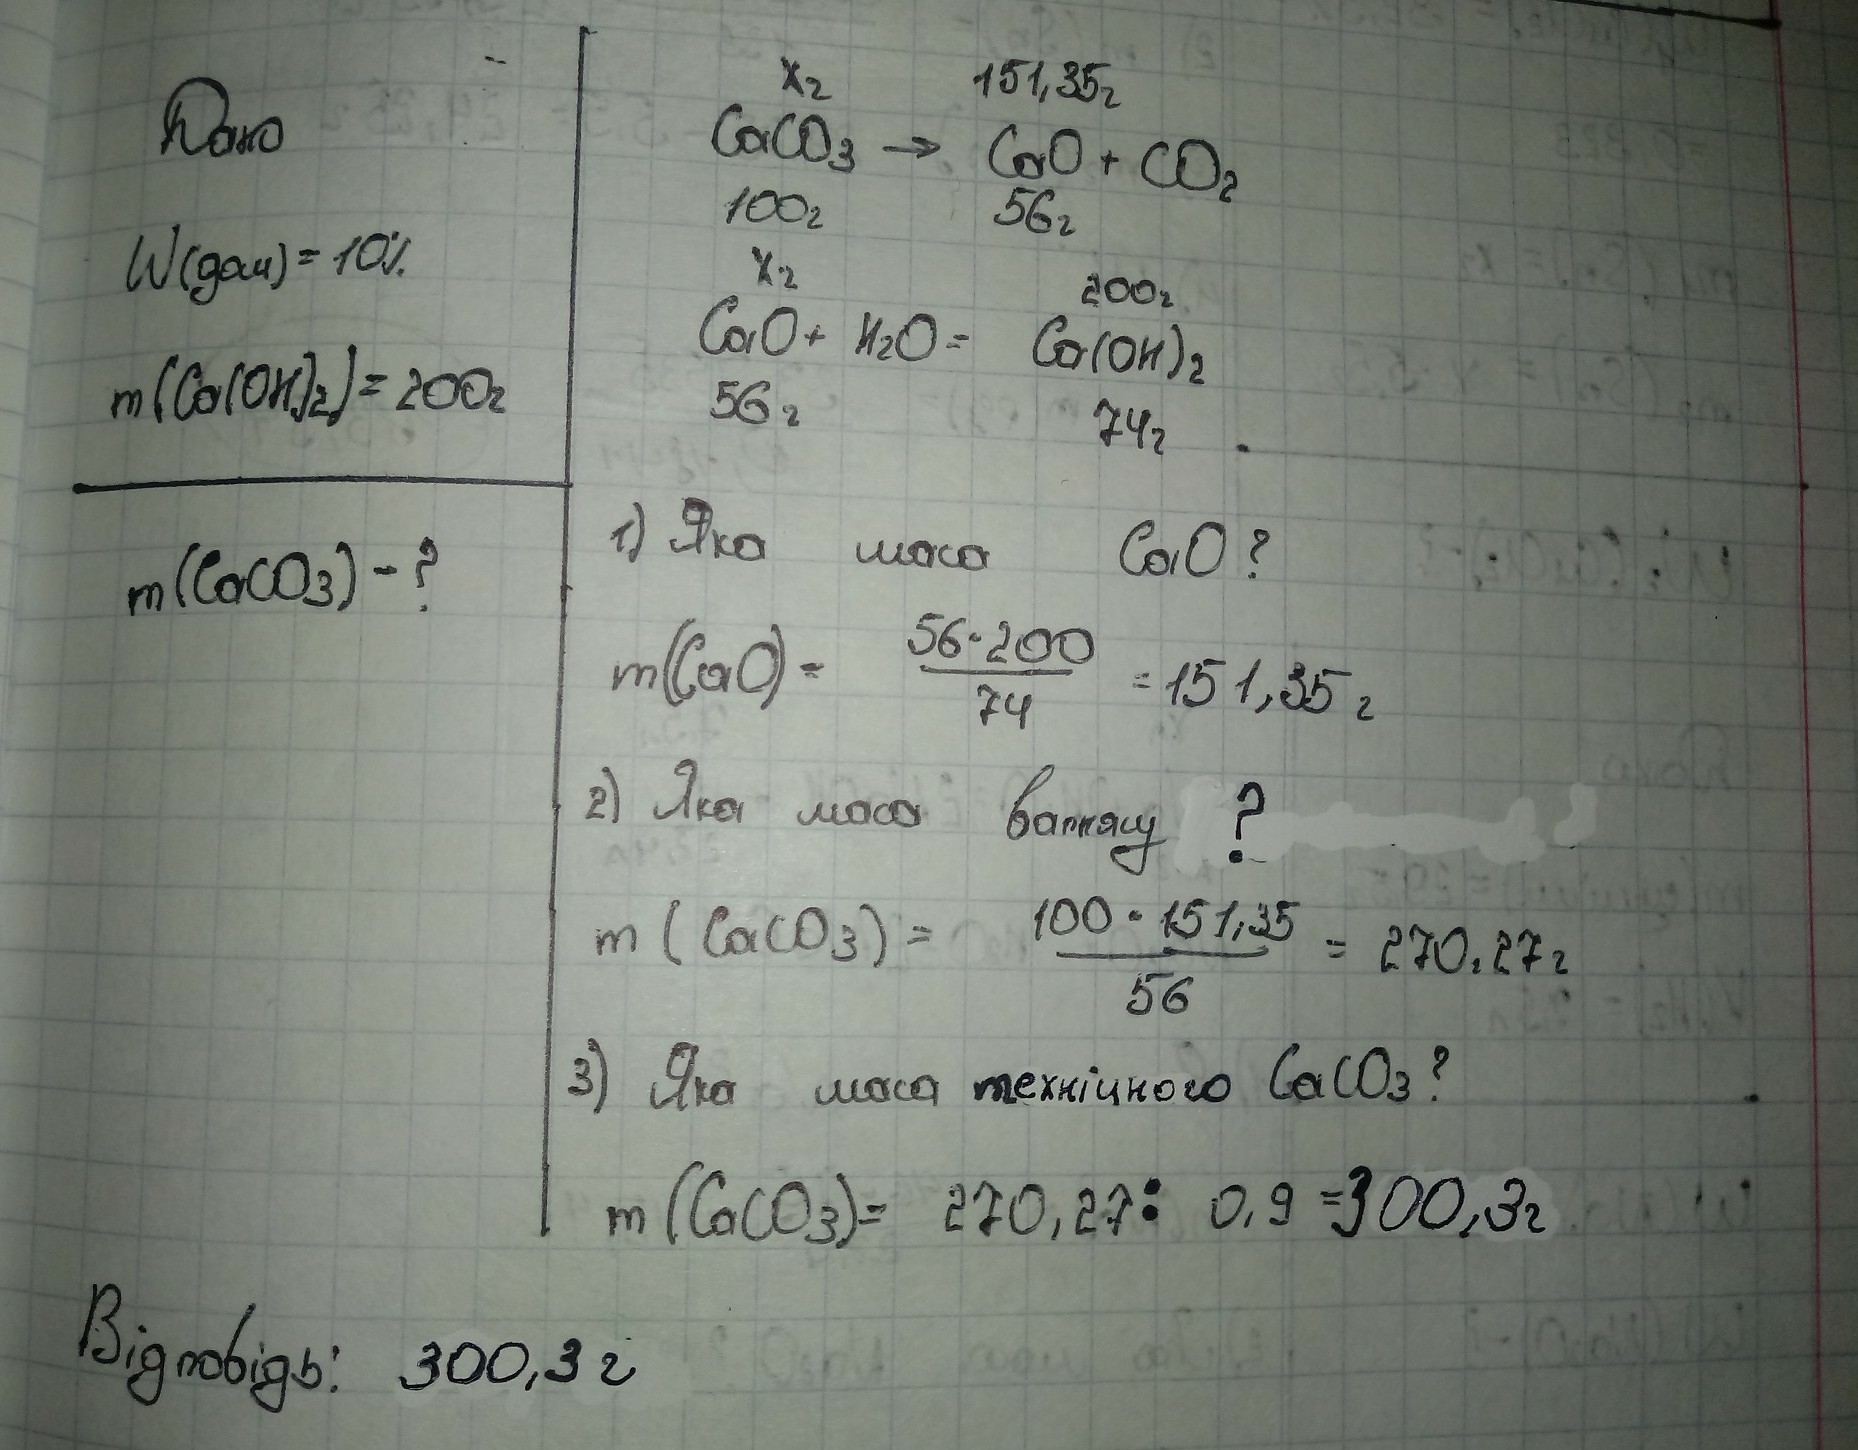 Дано
W(дом) = 10%
m(Ca(OH)2) = 200г
m(CaCO3) - ?
xг 151,35г
CaCO3 → CaO + CO2
100г 56г
xг 200г
CaO + H2O = Ca(OH)2
56г 74г
1) Яка маса CaO?
m(CaO) = 56·200 / 74 = 151,35г
2) Яка маса вапняку ?
m(CaCO3) = 100·151,35 / 56 = 270,27г
3) Яка маса технічного CaCO3?
m(CaCO3) = 270,27 : 0,9 = 300,3г
Відповідь: 300,3 г